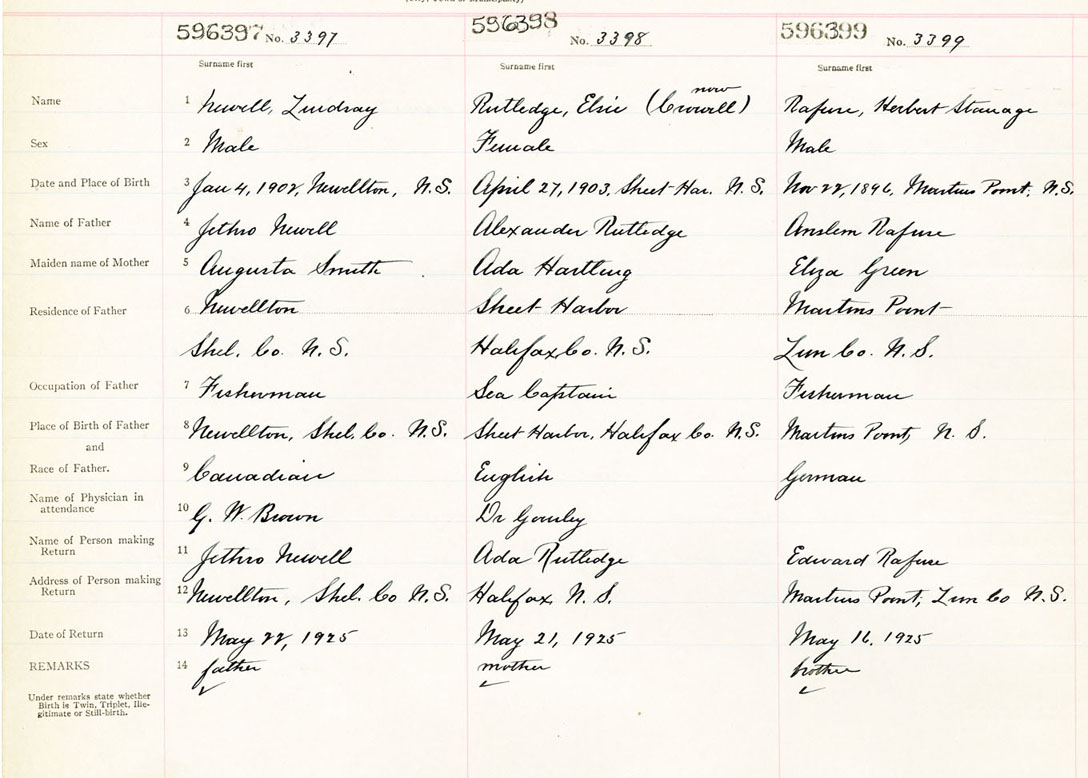 (City, Town or Municipality)
596397 No. 3397 596398 No. 3398 596399 No. 3399
Surname first Surname first Surname first
now
Name 1 Newell, Lindsay Rutledge, Elsie (Crowell) Rafuse, Herbert Stanage
Sex 2 Male Female Male
Date and Place of Birth 3 Jan 4, 1902, Newellton, N.S. April 27, 1903, Sheet Har. N.S. Nov 22, 1896, Martins Point, N.S.
Name of Father 4 Jethro Newell Alexander Rutledge Anslem Rafuse
Maiden name of Mother 5 Augusta Smith Ada Hartling Eliza Green
Residence of Father 6 Newellton Sheet Harbor Martins Point
Shel. Co. N.S. Halifax Co. N.S. Lun Co. N.S.
Occupation of Father 7 Fisherman Sea Captain Fisherman
Place of Birth of Father 8 Newellton, Shel. Co. N.S. Sheet Harbor, Halifax Co. N.S. Martins Point, N.S.
and
Race of Father. 9 Canadian English German
Name of Physician in
attendance 10 G. W. Brown Dr
Name of Person making
Return 11 Jethro Newell Ada Rutledge Edward Rafuse
Address of Person making
Return 12 Newellton, Shel. Co N.S. Halifax, N.S. Martins Point, Lun Co N.S.
Date of Return 13 May 22, 1925 May 21, 1925 May 16, 1925
REMARKS 14 father mother brother
Under remarks state whether
Birth is Twin, Triplet, Ille-
gitimate or Still-birth.